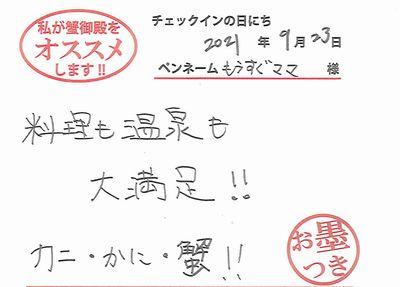 私が蟹御殿を
オススメ
します!!
チェックインの日にち
2021 年 9月 23日
ペンネーム もうすぐママ 様
料理も温泉も
大満足!!
カニ・かに・蟹!!
お墨
つき